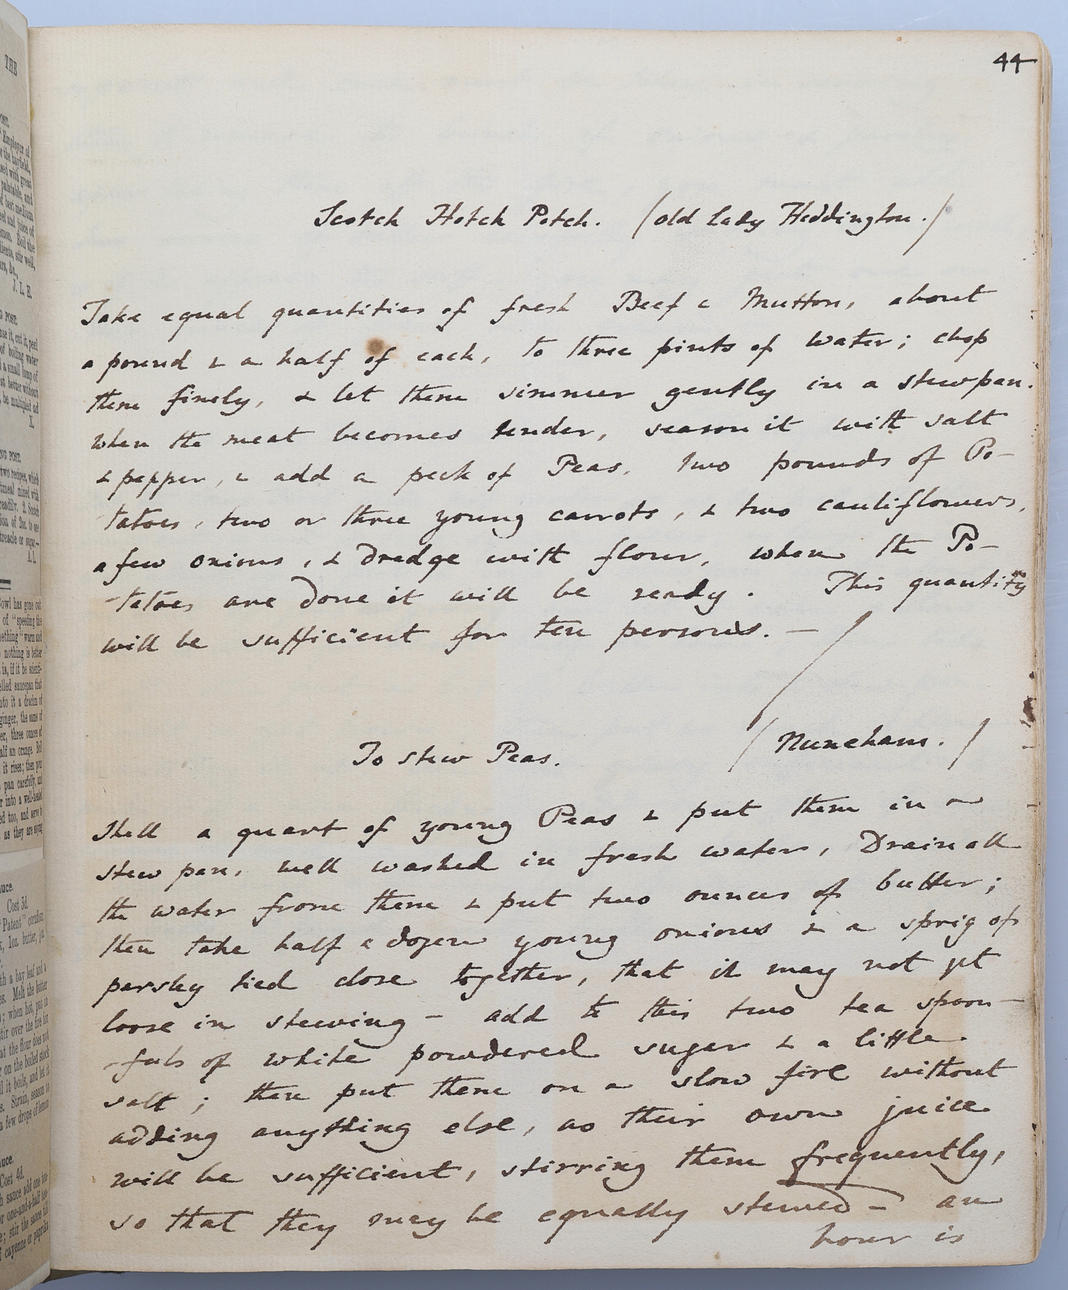 44
Scotch Hotch Potch. (old Lady Heddington.)
Take equal quantities of fresh Beef & Mutton, about
a pound & a half of each, to three pints of water; chop
them finely, & let them simmer gently in a stewpan.
when the meat becomes tender, season it with salt
& pepper, & add a peck of Peas, two pounds of Po-
tatoes, two or three young carrots, & two cauliflowers,
a few onions, & Dredge with flour, when the Po-
-tatoes are done it will be ready. This quantity
will be sufficient for ten persons. —
To stew Peas. (Nuneham.)
Shell a quart of young Peas & put them in a
stew pan, well washed in fresh water, Drain all
the water from them & put two ounces of butter;
then take half a dozen young onions & a sprig of
parsley tied close together, that it may not get
loose in stewing – add to this two tea spoon-
-fuls of white powdered sugar & a little
salt; then put them on a slow fire without
adding anything else, as their own juice
will be sufficient, stirring them frequently,
so that they may be equally stewed – an
hour is